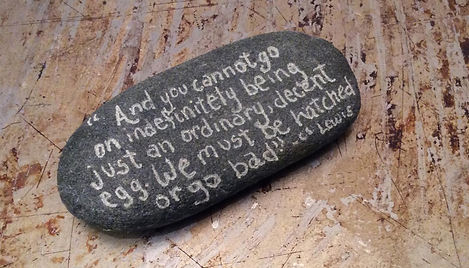 "And you cannot go
on indefinitely being
just an ordinary, decent
egg. We must be hatched
or go bad!" CS Lewis